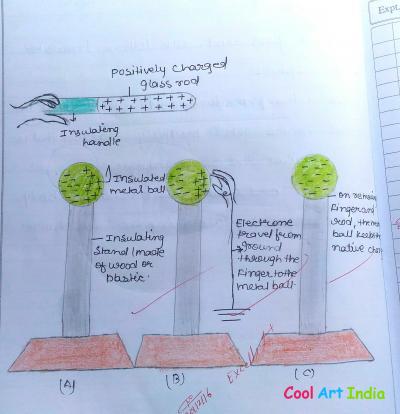 Expt.
Positively charged
glass rod
Insulating
handle
Insulated
metal ball
Insulating
Stand (made
of wood or
plastic.
Electrone
travel from
ground
through the
Finger to the
metal ball.
on
Finger and
rod, the
ball
native
(A)
(B)
(C)
Excellent
Cool Art India